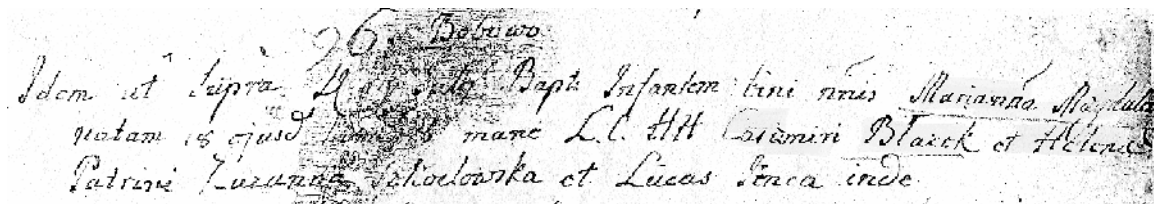 26. Bobowo
Idem ut supra July Bapt: Infantem bini nn̄is Marianna Magdale
natam 18 ejusd mane L.C. HH Casimiri Blaeck et Helena
Patrini Zuzanna Szkodowska et Lucas inde